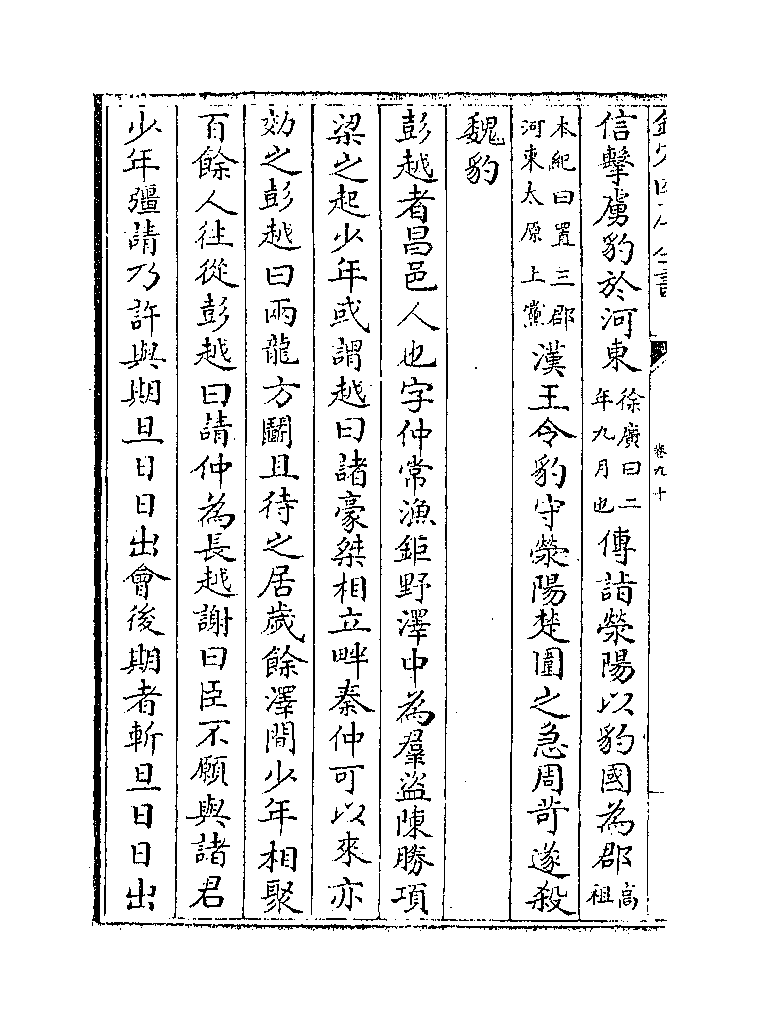 欽定四庫全書 卷九十
信擊虜豹於河東徐廣曰二年九月也傳詣滎陽以豹國為郡高祖
本紀曰置三郡河東太原上黨漢王令豹守滎陽楚圍之急周苛遂殺
魏豹
彭越者昌邑人也字仲常漁鉅野澤中為羣盜陳勝項
梁之起少年或謂越曰諸豪桀相立畔秦仲可以來亦
効之彭越曰兩龍方鬭且待之居歲餘澤間少年相聚
百餘人往從彭越曰請仲為長越謝曰臣不願與諸君
少年彊請乃許與期旦日日出會後期者斬旦日日出